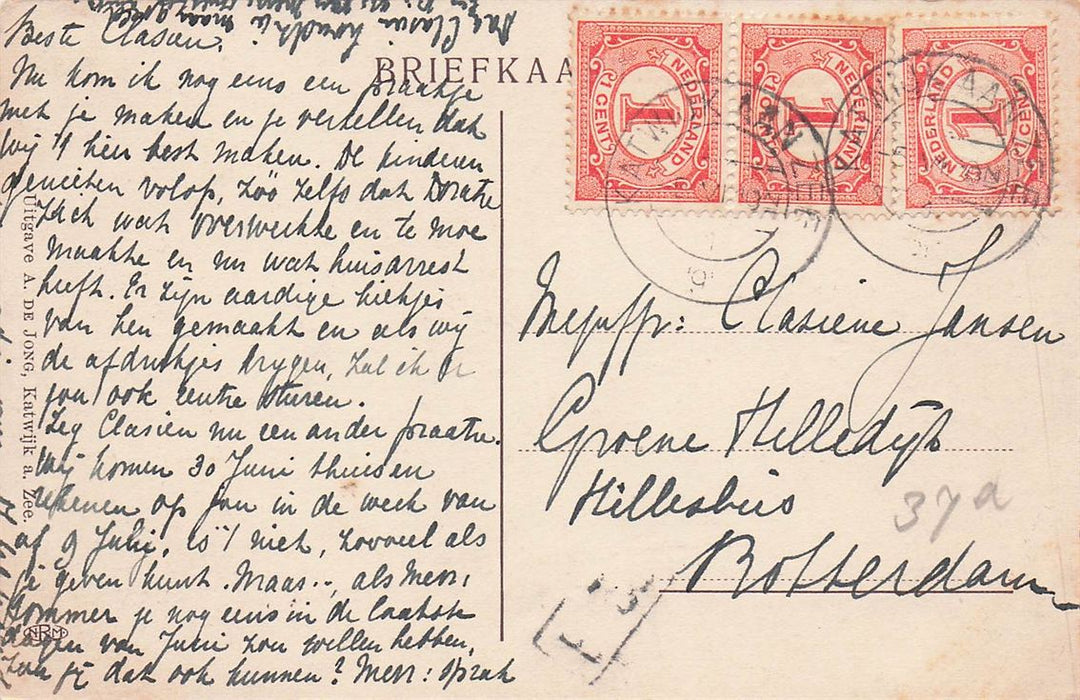 Beste Clasien.
Nu kom ik nog eens een praatje
met je maken en je vertellen dat
wij 't hier best maken. De kinderen
genieten volop, zóó zelfs dat
zich wat overwerkte en te moe
maakte en nu wat huisarrest
heeft. Er zijn aardige kiekjes
van hen gemaakt en als wij
de afdrukjes krygen, zal ik er
jou ook eentje sturen.
Zeg Clasien nu een ander praatje.
Wij komen 30 Juni thuis en
rekenen op jou in de week van
af 9 Juli, is 't niet, zooveel als
je geven kunt. Maar.., als Mevr:
Sommer je nog eens in de laatste
dagen van Juni zou willen hebben,
zou jij dat ook kunnen? Mevr: sprak
BRIEFKAA
NEDERLAND
1
1 CENT
NEDERLAND
1
1 CENT
NEDERLAND
1
1 CENT
Mejuffr: Clasiene Jansen
Groene Hilledijk
Hillesluis
Rotterdam
37d
Uitgave A. DE JONG, Katwijk a. Zee.
NRM